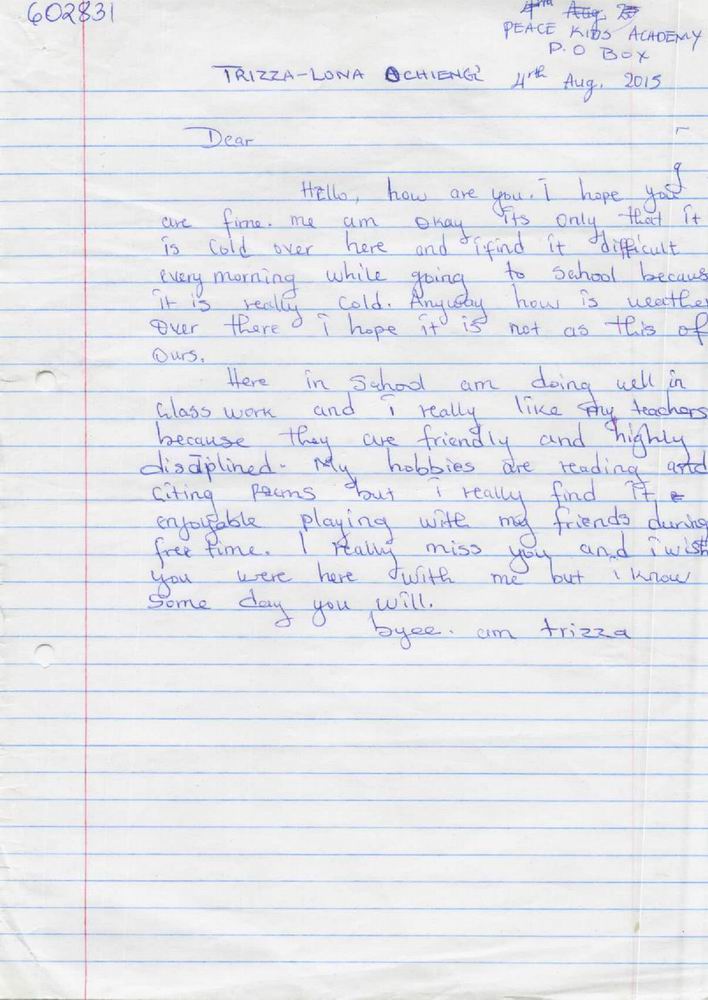 602831
4th Aug 2
PEACE KIDS ACADEMY
P.O BOX
TRIZZA-LONA OCHIENG'
4rth Aug, 2015
Dear
Hello, how are you. I hope you
are fime. me am okay its only that it
is cold over here and i find it difficult
every morning while going to school becaus
it is really cold. Anyway how is weathe
over there i hope it is not as this of
ours.
Here in School am doing well in
Class work and i really like my teachers
because they are friendly and highly
disciplined. My hobbies are reading and
citing poems but i really find it
enjoyable playing with my friends during
free time. I really miss you and i wish
you were here with me but i know
some day you will.
byee. am trizza